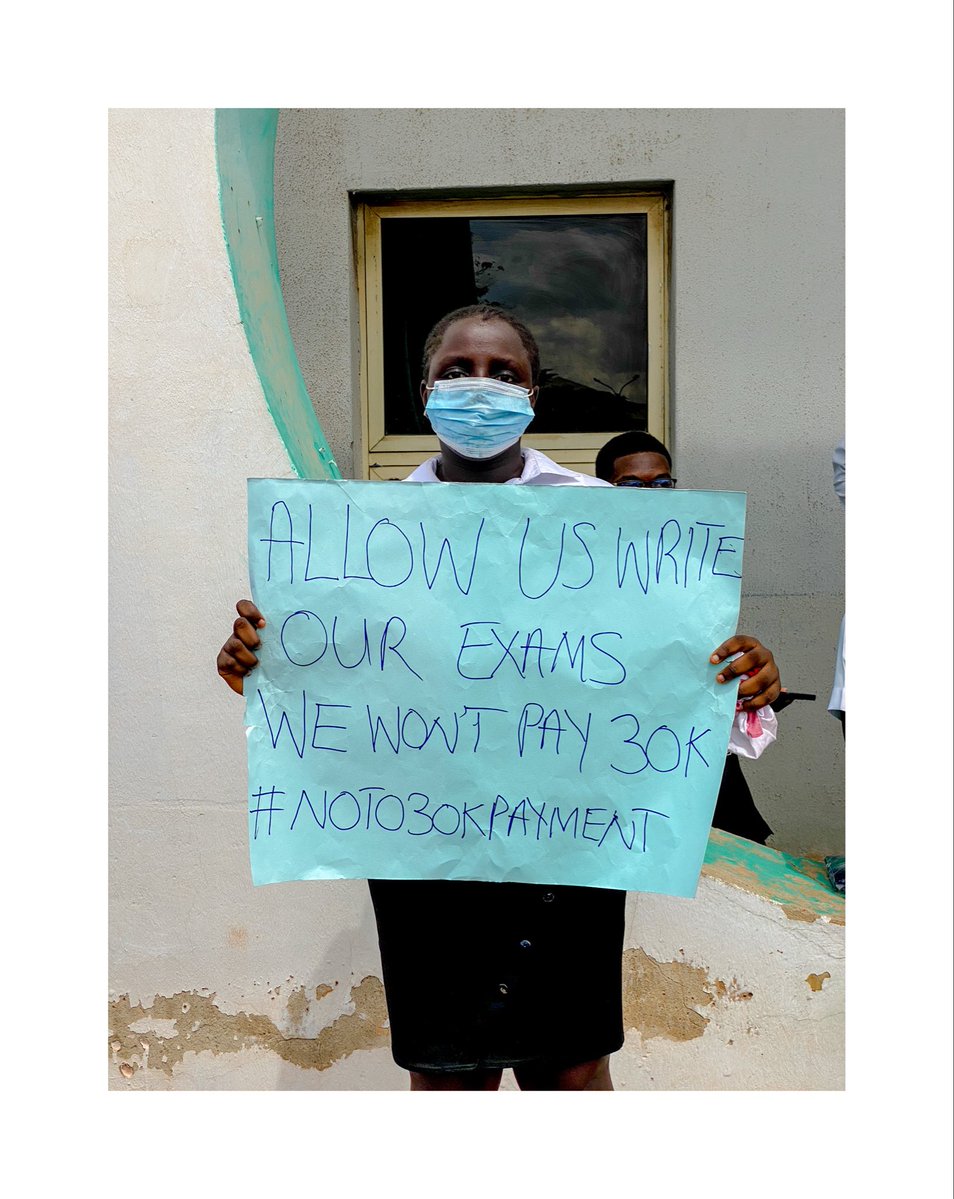 ALLOW US WRITE
OUR EXAMS
WE WON'T PAY 30K
#NOTO30KPAYMENT